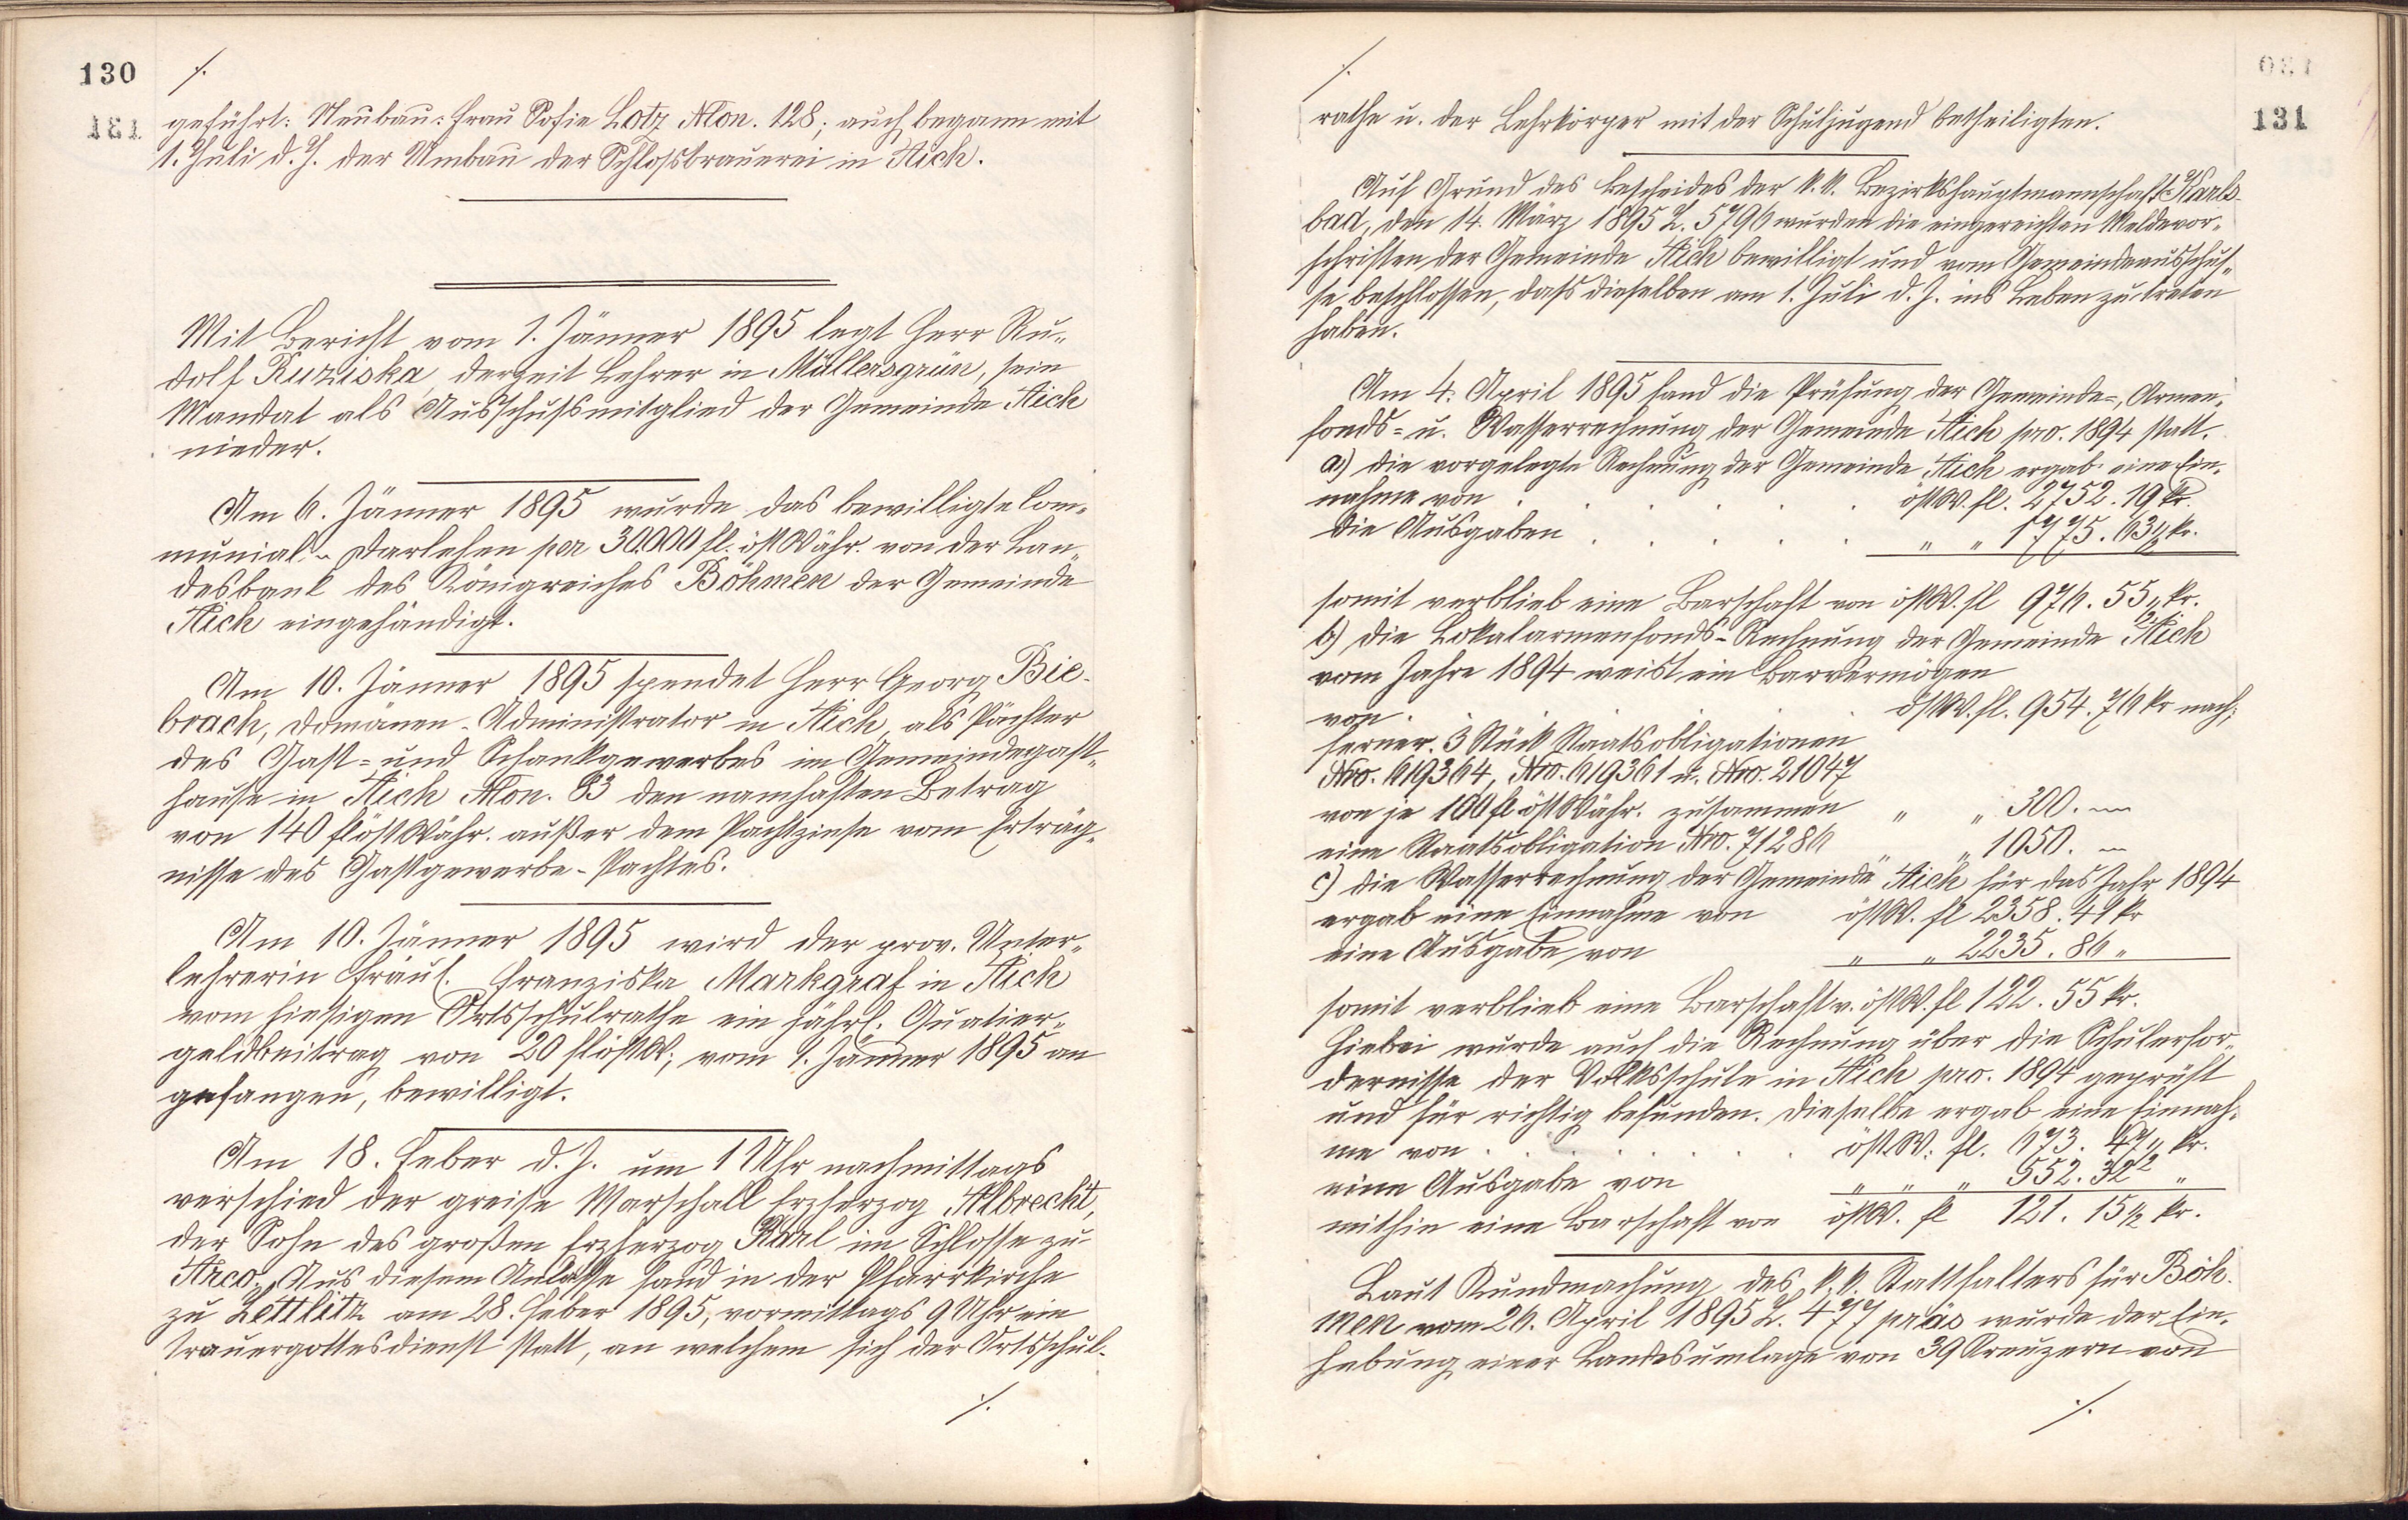 130
·/.
geführt: Neubau: Frau Sofie Lotz NCon. 128; auch begann mit
1. Juli d. J. der Umbau der Schlossbrauerei in Aich.
Mit Bericht vom 1. Jänner 1895 legt Herr Ru-
dolf Ruziska, derzeit Lehrer in Müllersgrün, sein
Mandat als Ausschussmitglied der Gemeinde Aich
nieder.
Am 6. Jänner 1895 wurde das bewilligte Com-
munial-Darlehen per 30.000 fl. öst Währ. von der Lan-
desbank des Königreiches Böhmen der Gemeinde
Aich eingehändigt.
Am 10. Jänner 1895 spendet Herr Georg Bie-
brach, Domänen-Administrator in Aich, als Pächter
des Gast- und Schankgewerbes im Gemeindegast-
hause in Aich NCon. 83 den namhaften Betrag
von 140 fl öst Währ. außer dem Pachtzinse vom Erträg-
nisse des Gastgewerbe-Pachtes.
Am 10. Jänner 1895 wird der prov. Unter-
lehrerin Fräul. Franziska Markgraf in Aich
vom hiesigen Ortsschulrathe ein jährl. Quatier-
geldbeitrag von 20 fl öst W., vom 1. Jänner 1895 an
gefangen, bewilligt.
Am 18. Feber d. J. um 1 Uhr nachmittags
verschied der greise Marschall Erzherzog Albrecht,
der Sohn des großen Erzherzog Karl im Schlosse zu
Arco. Aus diesem Anlasse fand in der Pfarrkirche
zu Zettlitz am 28. Feber 1895, vormittags 9 Uhr ein
Trauergottesdienst statt, an welchem sich der Ortsschul-
·/.
131
·/.
rathe u. der Lehrkörper mit der Schuljugend betheiligten.
Auf Grund des Bescheides der k. k. Bezirkshauptmannschaft Karls-
bad, den 14. März 1895 Z. 5796 wurden die eingereichten Meldevor-
schriften der Gemeinde Aich bewilligt und vom Gemeindeausschus-
se beschlossen, dass dieselben am 1. Juli d. J. ins Leben zu treten
haben.
Am 4. April 1895 fand die Prüfung der Gemeinde-, Armen-
fonds- u. Wasserrechnung der Gemeinde Aich pro. 1894 statt.
a.) die vorgelegte Rechnung der Gemeinde Aich ergab eine Ein-
nahme von . . . . . öst W. fl. 2752. 19 kr.
die Ausgaben . . . . . " " 1775. 63 1/2 kr.
somit verblieb eine Barschaft von öst W. fl 976. 55 1/2 kr.
b.) die Lokalarmenfonds-Rechnung der Gemeinde Aich
vom Jahre 1894 weist ein Barvermögen
von . . . . öst W. fl. 954. 76 kr nach;
ferner 3 Stück Staatsobligationen
Nro. 619364, Nro. 619361 u. Nro. 21047
von je 100 fl öst Währ. zusammen " " 300. —
eine Staatsobligation Nro. 71286 " " 1050. —
c.) die Wasserrechnung der Gemeinde Aich für das Jahr 1894
ergab eine Einnahme von öst W. fl 2358. 41 kr
eine Ausgabe von " " 2235. 86 "
somit verblieb eine Barschaft v. öst W. fl 122. 55 kr.
Hiebei wurde auch die Rechnung über die Schulerfor-
dernisse der Volksschule in Aich pro. 1894 geprüft
und für richtig befunden. Dieselbe ergab eine Einnah-
me von . . . . . . . öst W. fl. 673. 47 1/2 kr.
eine Ausgabe von " " " 552. 32 "
mithin eine Barschaft von öst W. fl 121. 15 1/2 kr.
Laut Kundmachung des k. k. Statthalters für Böh-
men vom 26. April 1895 Z. 477 präs wurde der Ein-
hebung einer Landesumlage von 39 Kreuzern von
·/.